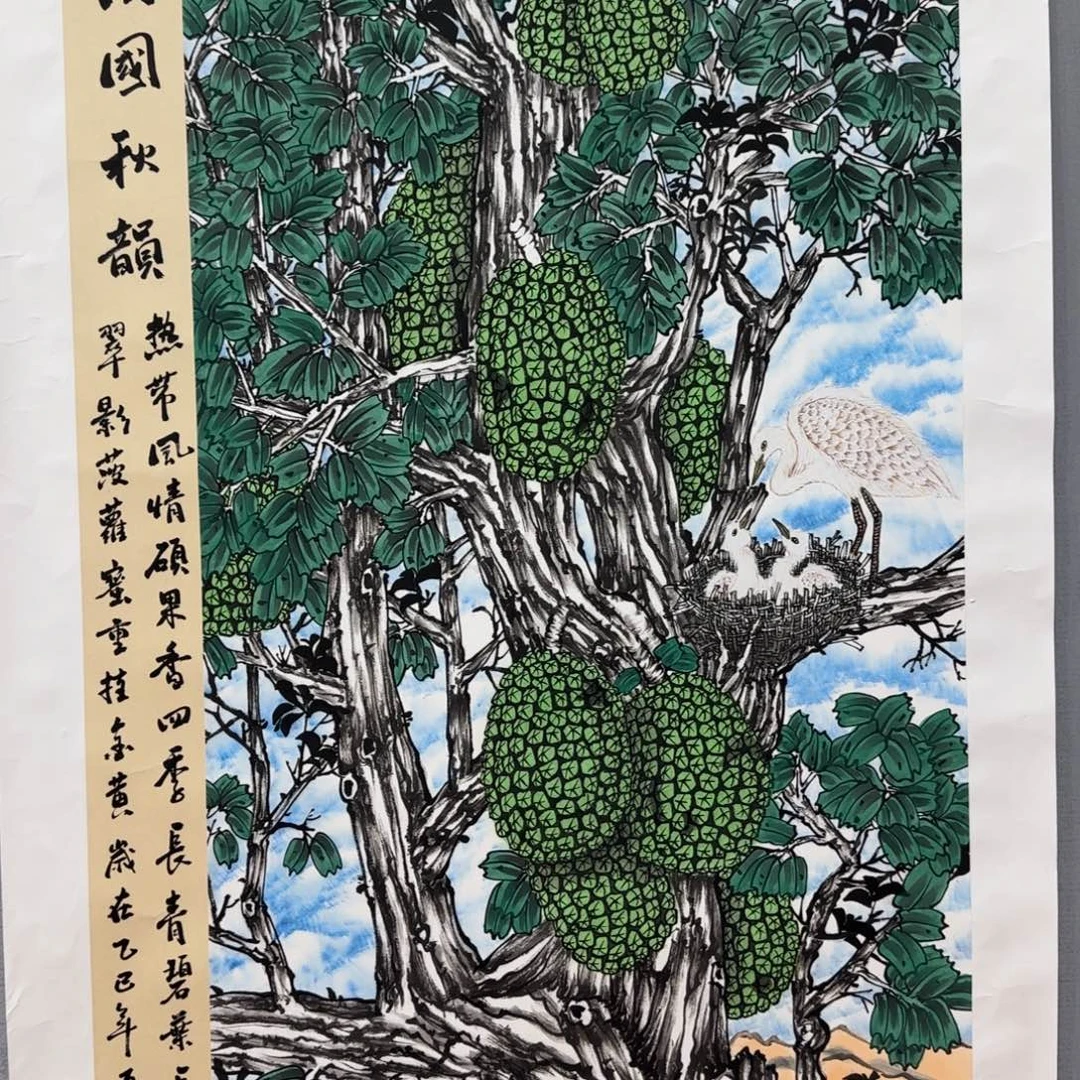 國秋韻
熱带風情碩果香四季長青碧葉
翠影菠蘿蜜重挂金黄歲在乙巳年